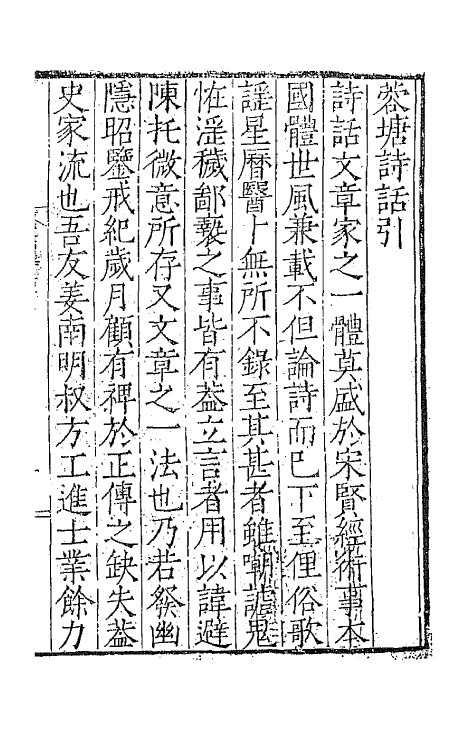 蓉塘詩話引
詩話文章家之一體莫盛於宋賢經術事本
國體世風兼載不但論詩而已下至俚俗歌
謠星曆醫卜無所不錄至其甚者雖嘲謔鬼
怪淫穢鄙褻之事皆有蓋立言者用以諱避
陳托微意所存又文章之一法也乃若發幽
隱昭鑒戒紀歲月顧有裨於正傳之缺失蓋
史家流也吾友姜南明叔方工進士業餘力